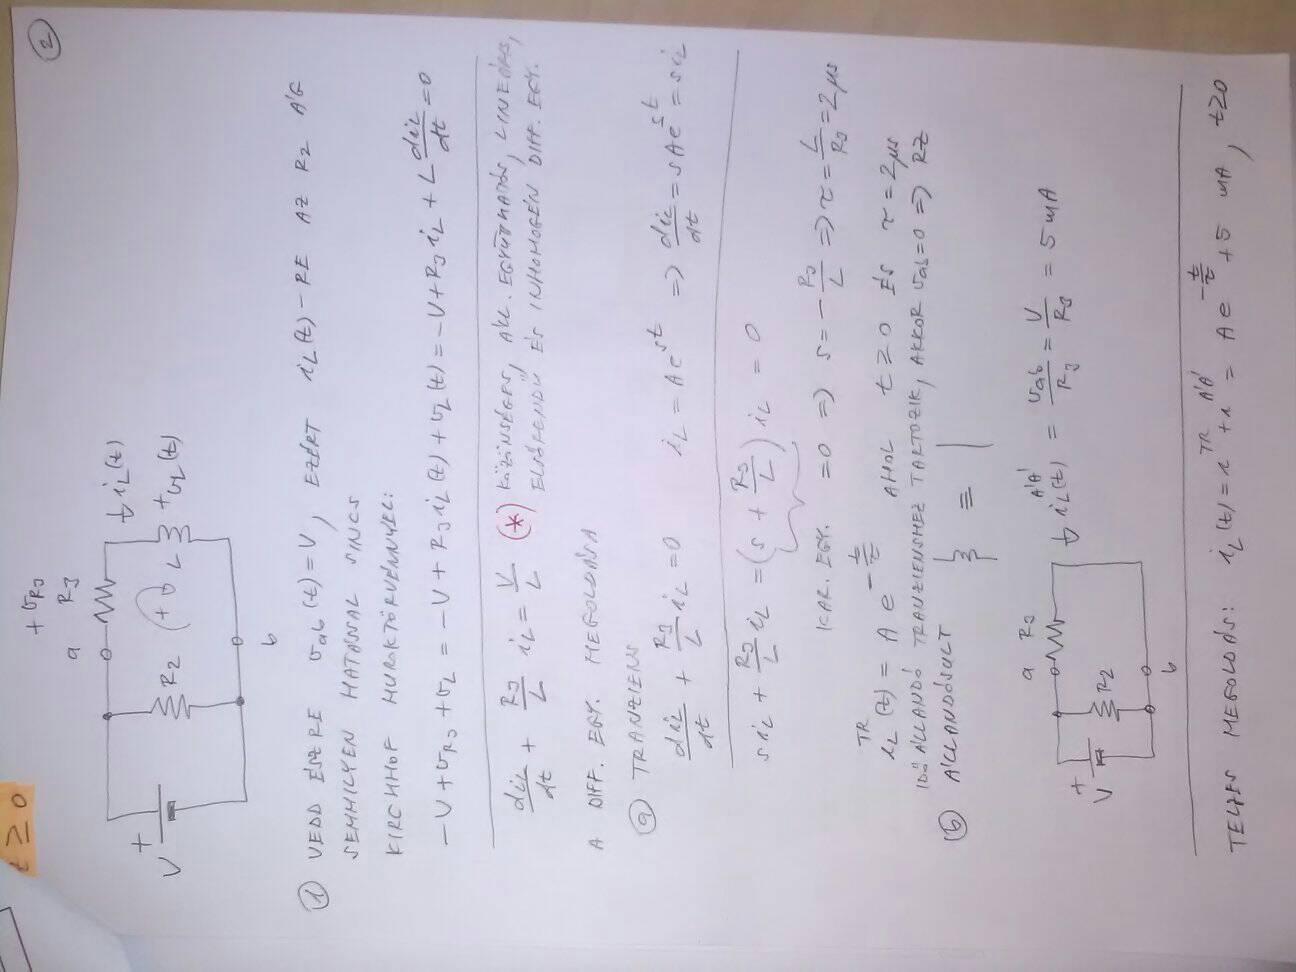 ②
t ≥ 0
+ υR3
a R3
iL(t)
V + R2 L + υL(t)
b
① VEDD ÉSZRE υab(t) = V, EZÉRT iL(t)-RE AZ R2 ÁG
SEMMILYEN HATÁSSAL SINCS
KIRCHHOF HUROKTÖRVÉNNYEL:
-V + υR3 + υL = -V + R3 iL(t) + υL(t) = -V + R3 iL + L diL/dt = 0
diL/dt + R3/L iL = V/L (*) KÖZÖNSÉGES, ÁLL. EGYÜTTHATÓS, LINEÁRIS,
ELSŐRENDŰ ÉS INHOMOGÉN DIFF. EGY.
A DIFF. EGY. MEGOLDÁSA
ⓐ TRANZIENS
diL/dt + R3/L iL = 0 iL = A e^st => diL/dt = s A e^st = s iL
s iL + R3/L iL = (s + R3/L) iL = 0
KAR. EGY. = 0 => s = - R3/L => τ = L/R3 = 2 μs
iL^TR(t) = A e^-t/τ AHOL t ≥ 0 ÉS τ = 2 μs
IDŐÁLLANDÓ TRANZIENSHEZ TARTOZIK, AKKOR υab = 0 => RZ
ⓑ ÁLLANDÓSULT ≡
a R3
V + R2 iL^ÁÁ(t) = υab/R3 = V/R3 = 5 mA
b
TELJES MEGOLDÁS: iL(t) = i^TR + i^ÁÁ = A e^-t/τ + 5 mA, t ≥ 0